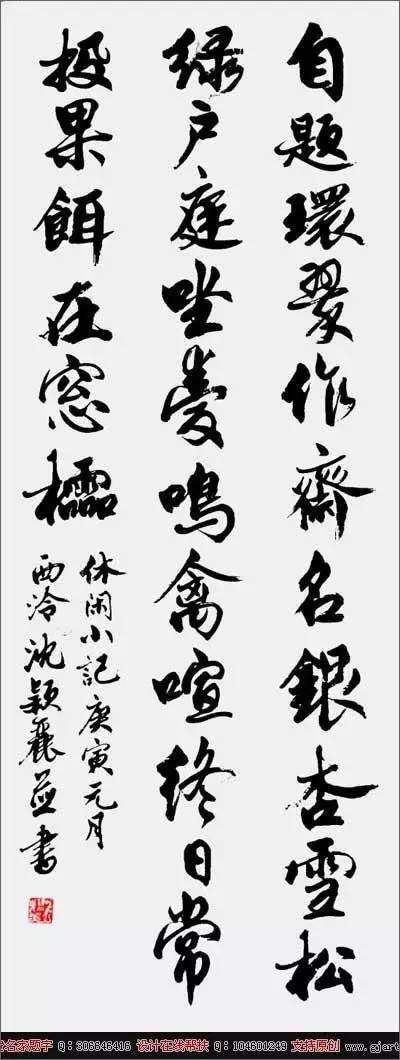 自題環翠作齋名銀杏雪松
绿户庭坐愛鳴禽喧終日常
投果餌在窓櫺
休闲小記庚寅元月
西泠沈穎麗並書
名家题字 Q：306846416 设计在线帮扶 Q：104601249 支持原创 www.gjart